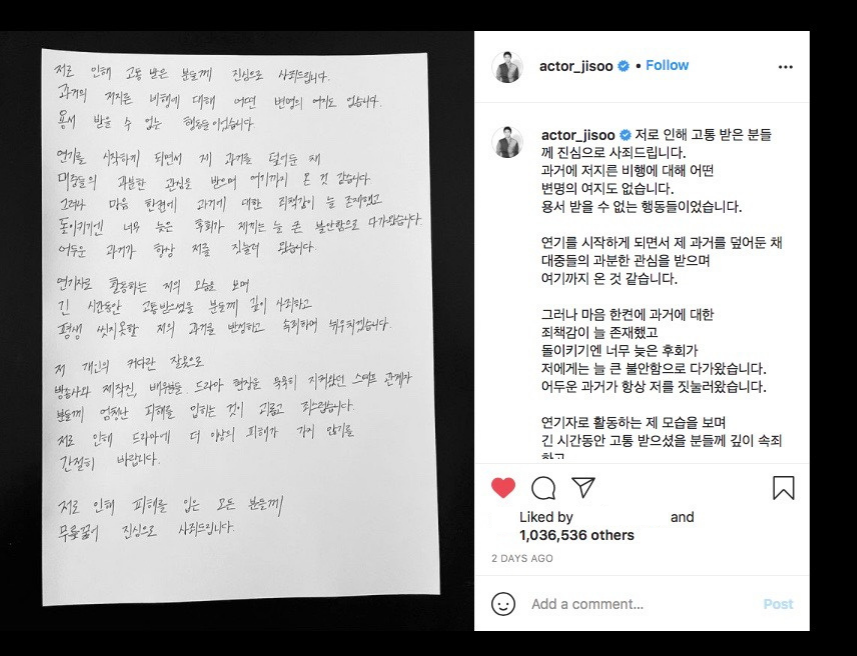 저로 인해 고통 받은 분들께 진심으로 사죄드립니다.
과거의 저지른 비행에 대해 어떤 변명의 여지도 없습니다.
용서 받을 수 없는 행동들이었습니다.
연기를 시작하게 되면서 제 과거를 덮어둔 채
대중들의 과분한 관심을 받으며 여기까지 온 것 같습니다.
그러나 마음 한켠에 과거에 대한 죄책감이 늘 존재했고
돌이키기엔 너무 늦은 후회가 저에게는 늘 큰 불안함으로 다가왔습니다.
어두운 과거가 항상 저를 짓눌러 왔습니다.
연기자로 활동하는 저의 모습을 보며
긴 시간동안 고통받으셨을 분들께 깊이 사죄하고
평생 씻지못할 저의 과거를 반성하고 속죄하며 뉘우치겠습니다.
저 개인의 커다란 잘못으로
방송사와 제작진, 배우분들, 드라마 현장을 묵묵히 지켜왔던 스텝분들 관계자
분들께 엄청난 피해를 입히는 것이 괴롭고 죄스럽습니다.
저로 인해 드라마에 더 이상의 피해가 가지 않기를
간절히 바랍니다.
저로 인해 피해를 입은 모든 분들께
무릎꿇어 진심으로 사죄드립니다.
actor_jisoo • Follow
actor_jisoo 저로 인해 고통 받은 분들
께 진심으로 사죄드립니다.
과거에 저지른 비행에 대해 어떤
변명의 여지도 없습니다.
용서 받을 수 없는 행동들이었습니다.
연기를 시작하게 되면서 제 과거를 덮어둔 채
대중들의 과분한 관심을 받으며
여기까지 온 것 같습니다.
그러나 마음 한켠에 과거에 대한
죄책감이 늘 존재했고
돌이키기엔 너무 늦은 후회가
저에게는 늘 큰 불안함으로 다가왔습니다.
어두운 과거가 항상 저를 짓눌러왔습니다.
연기자로 활동하는 제 모습을 보며
긴 시간동안 고통 받으셨을 분들께 깊이 속죄
하고
Liked by and
1,036,536 others
2 DAYS AGO
Add a comment... Post